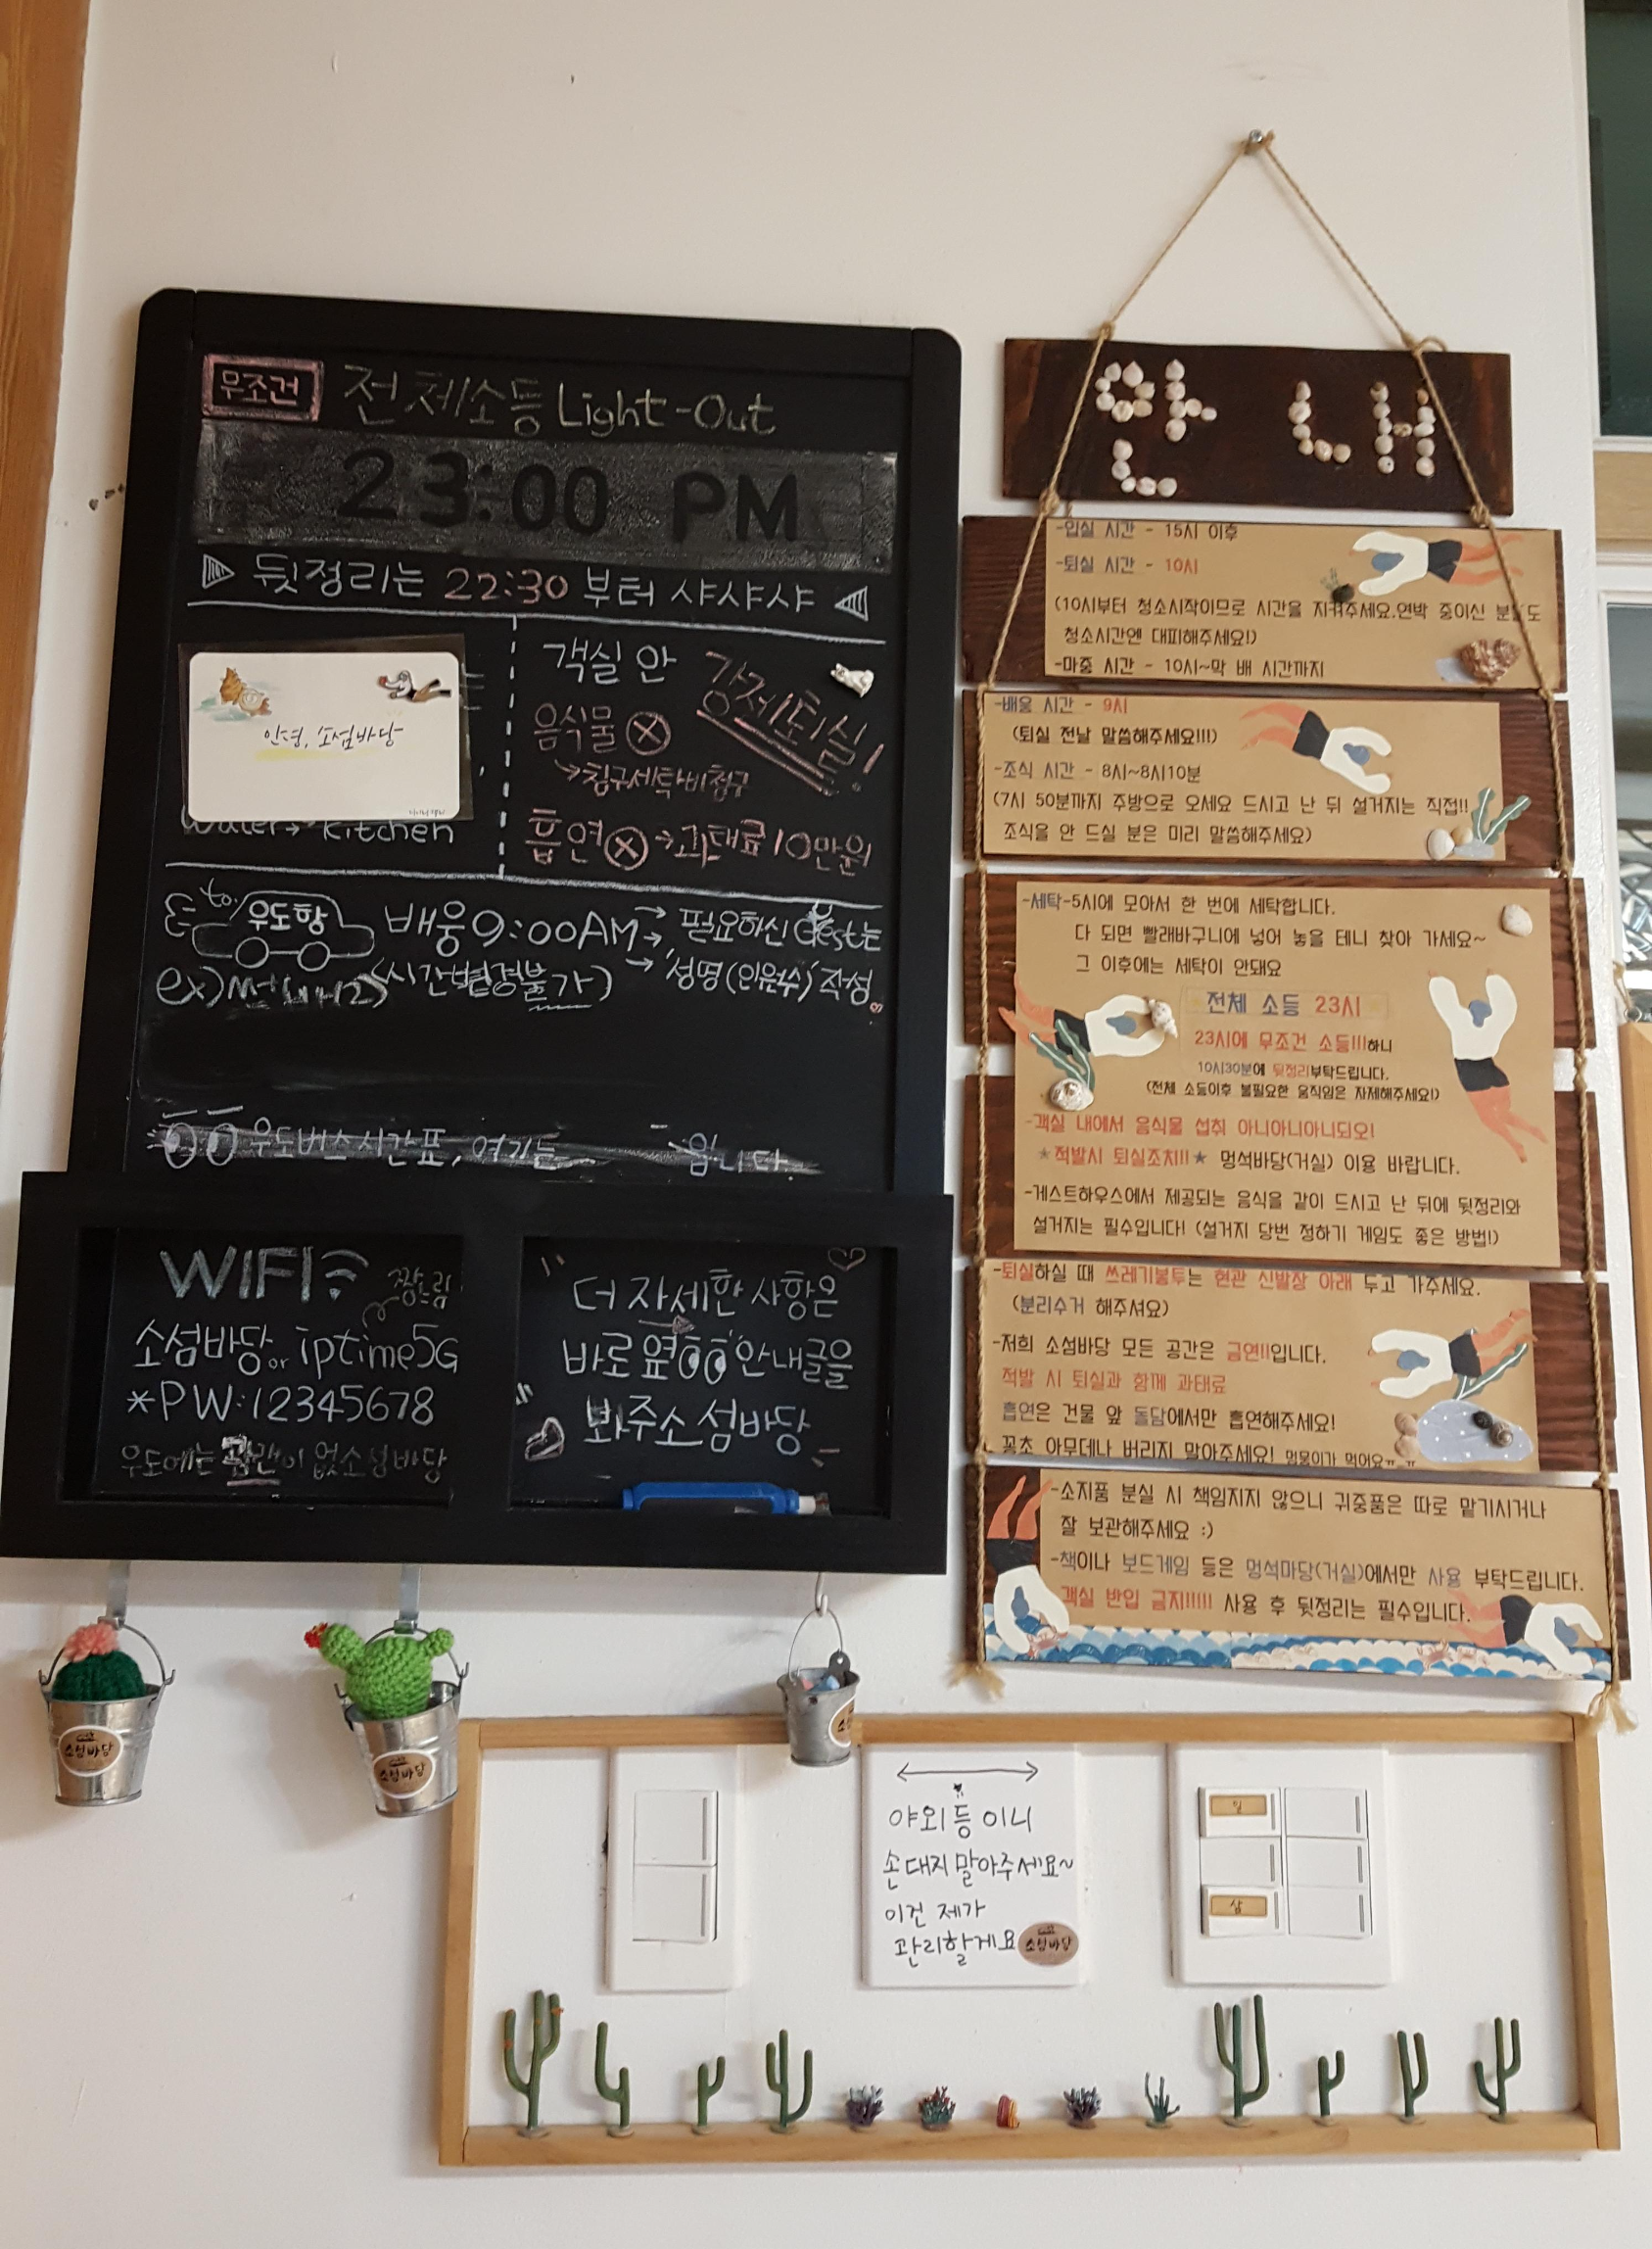 무조건 전체소등 Light-Out
23:00 PM
뒷정리는 22:30 부터 샤샤샤
안녕, 소섬바당
Water → kitchen
객실 안
강제퇴실!
음식물 ⓧ
→침구세탁비청구
흡연ⓧ→과태료10만원
to. 우도항 배웅 9:00AM → 필요하신 Gest는
ex) (시간변경불가) → 성명(인원수) 작성
우도버스시간표, 여기는 입니다.
WIFI 짱느림
소섬바당 or iptime5G
*PW:12345678
우도에는 이 없소섬바당
더 자세한 사항은
바로 옆 안내글을
봐주소섬바당
안내
-입실 시간 - 15시 이후
-퇴실 시간 - 10시
(10시부터 청소시작이므로 시간을 지켜주세요.연박 중이신 분들도
청소시간엔 대피해주세요!)
-마중 시간 - 10시~막 배 시간까지
-배웅 시간 - 9시
(퇴실 전날 말씀해주세요!!!)
-조식 시간 - 8시~8시10분
(7시 50분까지 주방으로 오세요 드시고 난 뒤 설거지는 직접!!
조식을 안 드실 분은 미리 말씀해주세요)
-세탁-5시에 모아서 한 번에 세탁합니다.
다 되면 빨래바구니에 넣어 놓을 테니 찾아 가세요~
그 이후에는 세탁이 안돼요
전체 소등 23시
23시에 무조건 소등!!!하니
10시30분에 뒷정리부탁드립니다.
(전체 소등이후 불필요한 움직임은 자제해주세요!)
-객실 내에서 음식물 섭취 아니아니아니되오!
★적발시 퇴실조치!!★ 멍석바당(거실) 이용 바랍니다.
-게스트하우스에서 제공되는 음식을 같이 드시고 난 뒤에 뒷정리와
설거지는 필수입니다! (설거지 당번 정하기 게임도 좋은 방법!)
-퇴실하실 때 쓰레기봉투는 현관 신발장 아래 두고 가주세요.
(분리수거 해주셔요)
-저희 소섬바당 모든 공간은 금연!!입니다.
적발 시 퇴실과 함께 과태료
흡연은 건물 앞 돌담에서만 흡연해주세요!
꽁초 아무데나 버리지 말아주세요! 멍뭉이가 먹어요ㅠ_ㅠ
-소지품 분실 시 책임지지 않으니 귀중품은 따로 맡기시거나
잘 보관해주세요 :)
-책이나 보드게임 등은 멍석마당(거실)에서만 사용 부탁드립니다.
객실 반입 금지!!!!! 사용 후 뒷정리는 필수입니다.
소섬바당
소섬바당
소섬바당
야외등이니
손대지 말아주세요~
이건 제가
관리할게요 소섬바당
일
삼